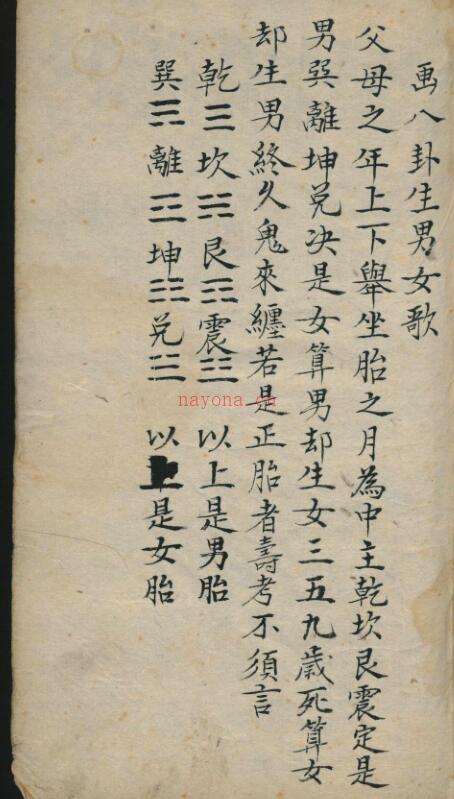 畵八卦生男女歌
父母之年上下舉坐胎之月為中主乾坎艮震定是
男巽離坤兌决是女算男却生女三五九歲死算女
却生男終久鬼來纏若是正胎者壽考不須言
乾☰坎☵艮☶震☳ 以上是男胎
巽☴離☲坤☷兌☱ 以上是女胎
nayona.cn